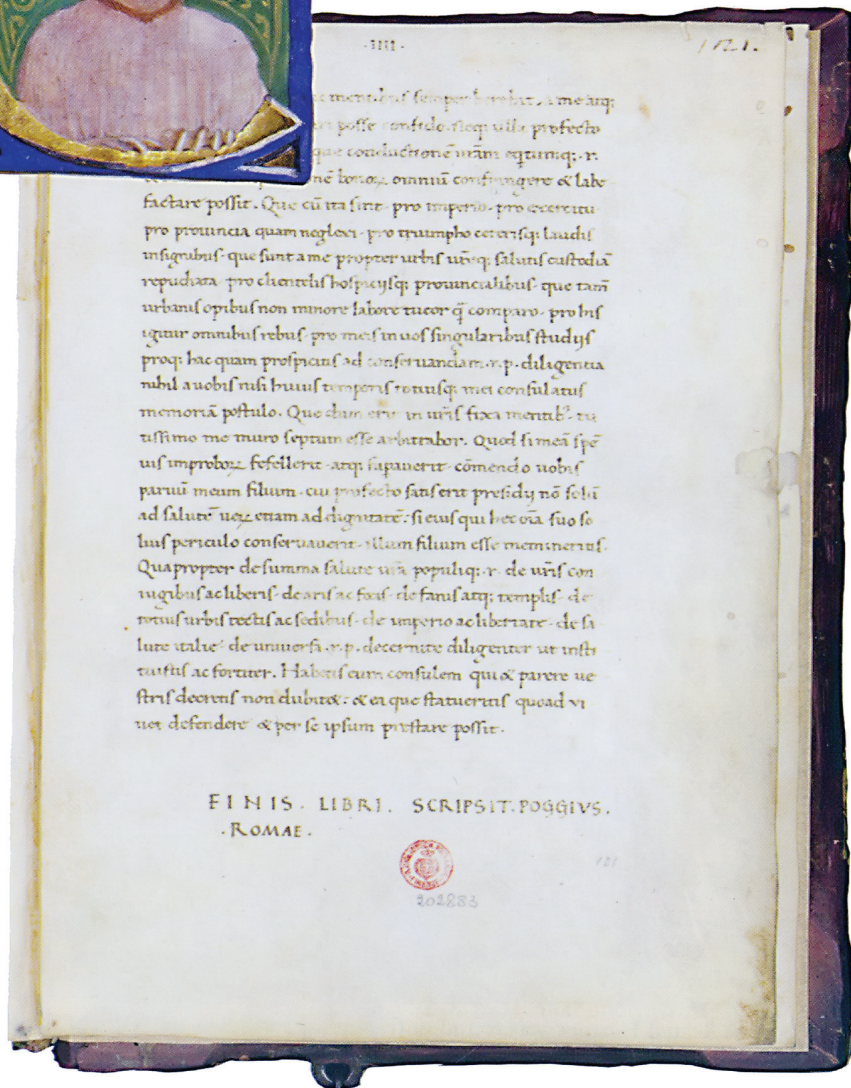 ·IIII·
121.
mentibus semper horebat. a me atq;
posse confido. neq; ulla profecto
que coniuctionē urām eq̄tumq; .r.
nē bonoꝝ omniū confringere & labe
factare possit. Que cū ita sint · pro imperio · pro exercitu
pro prouincia quam neglexi · pro triumpho ceterisq; laudis
insignibus · que sunt a me propter urbis urēq; salutis custodiā
repudiata · pro clientelis hospicijsq; prouincialibus · que tam̄
urbanis opibus non minore labore tueor q̄ comparo · pro his
igitur omnibus rebus · pro meis in uos singularibus studijs
proq; hac quam prospicitis ad conseruandam .r.p. diligentia
nihil a uobis nisi huius temporis totiusq; mei consulatus
memoriā postulo. Que dum erit in uris̄ fixa mentib; tu
tissimo me muro septum esse arbitrabor. Quod si meā spē
uis improboꝝ fefellerit · atq; supauerit · cōmendo uobis
paruū meum filium · cui profecto satis erit presidij nō solū
ad salutē ueꝝ etiam ad dignitatē: si eius qui hec oīa suo so
lius periculo conseruauerit · illum filium esse memineritis·
Quapropter de summa salute urā populiq; ·r· de uris̄ con
iugibus ac liberis · de aris ac focis · de fanis atq; templis · de
totius urbis tectis ac sedibus · de imperio ac libertate · de sa
lute italie · de uniuersa .r.p. decernite diligenter ut insti
tuistis ac fortiter. Habetis eum consulem qui & parere ue
stris decretis non dubitet: & ea que statueritis quoad ui
uet defendere & per se ipsum prestare possit·
FINIS · LIBRI. SCRIPSIT · POGGIVS.
· ROMAE ·
121
202883